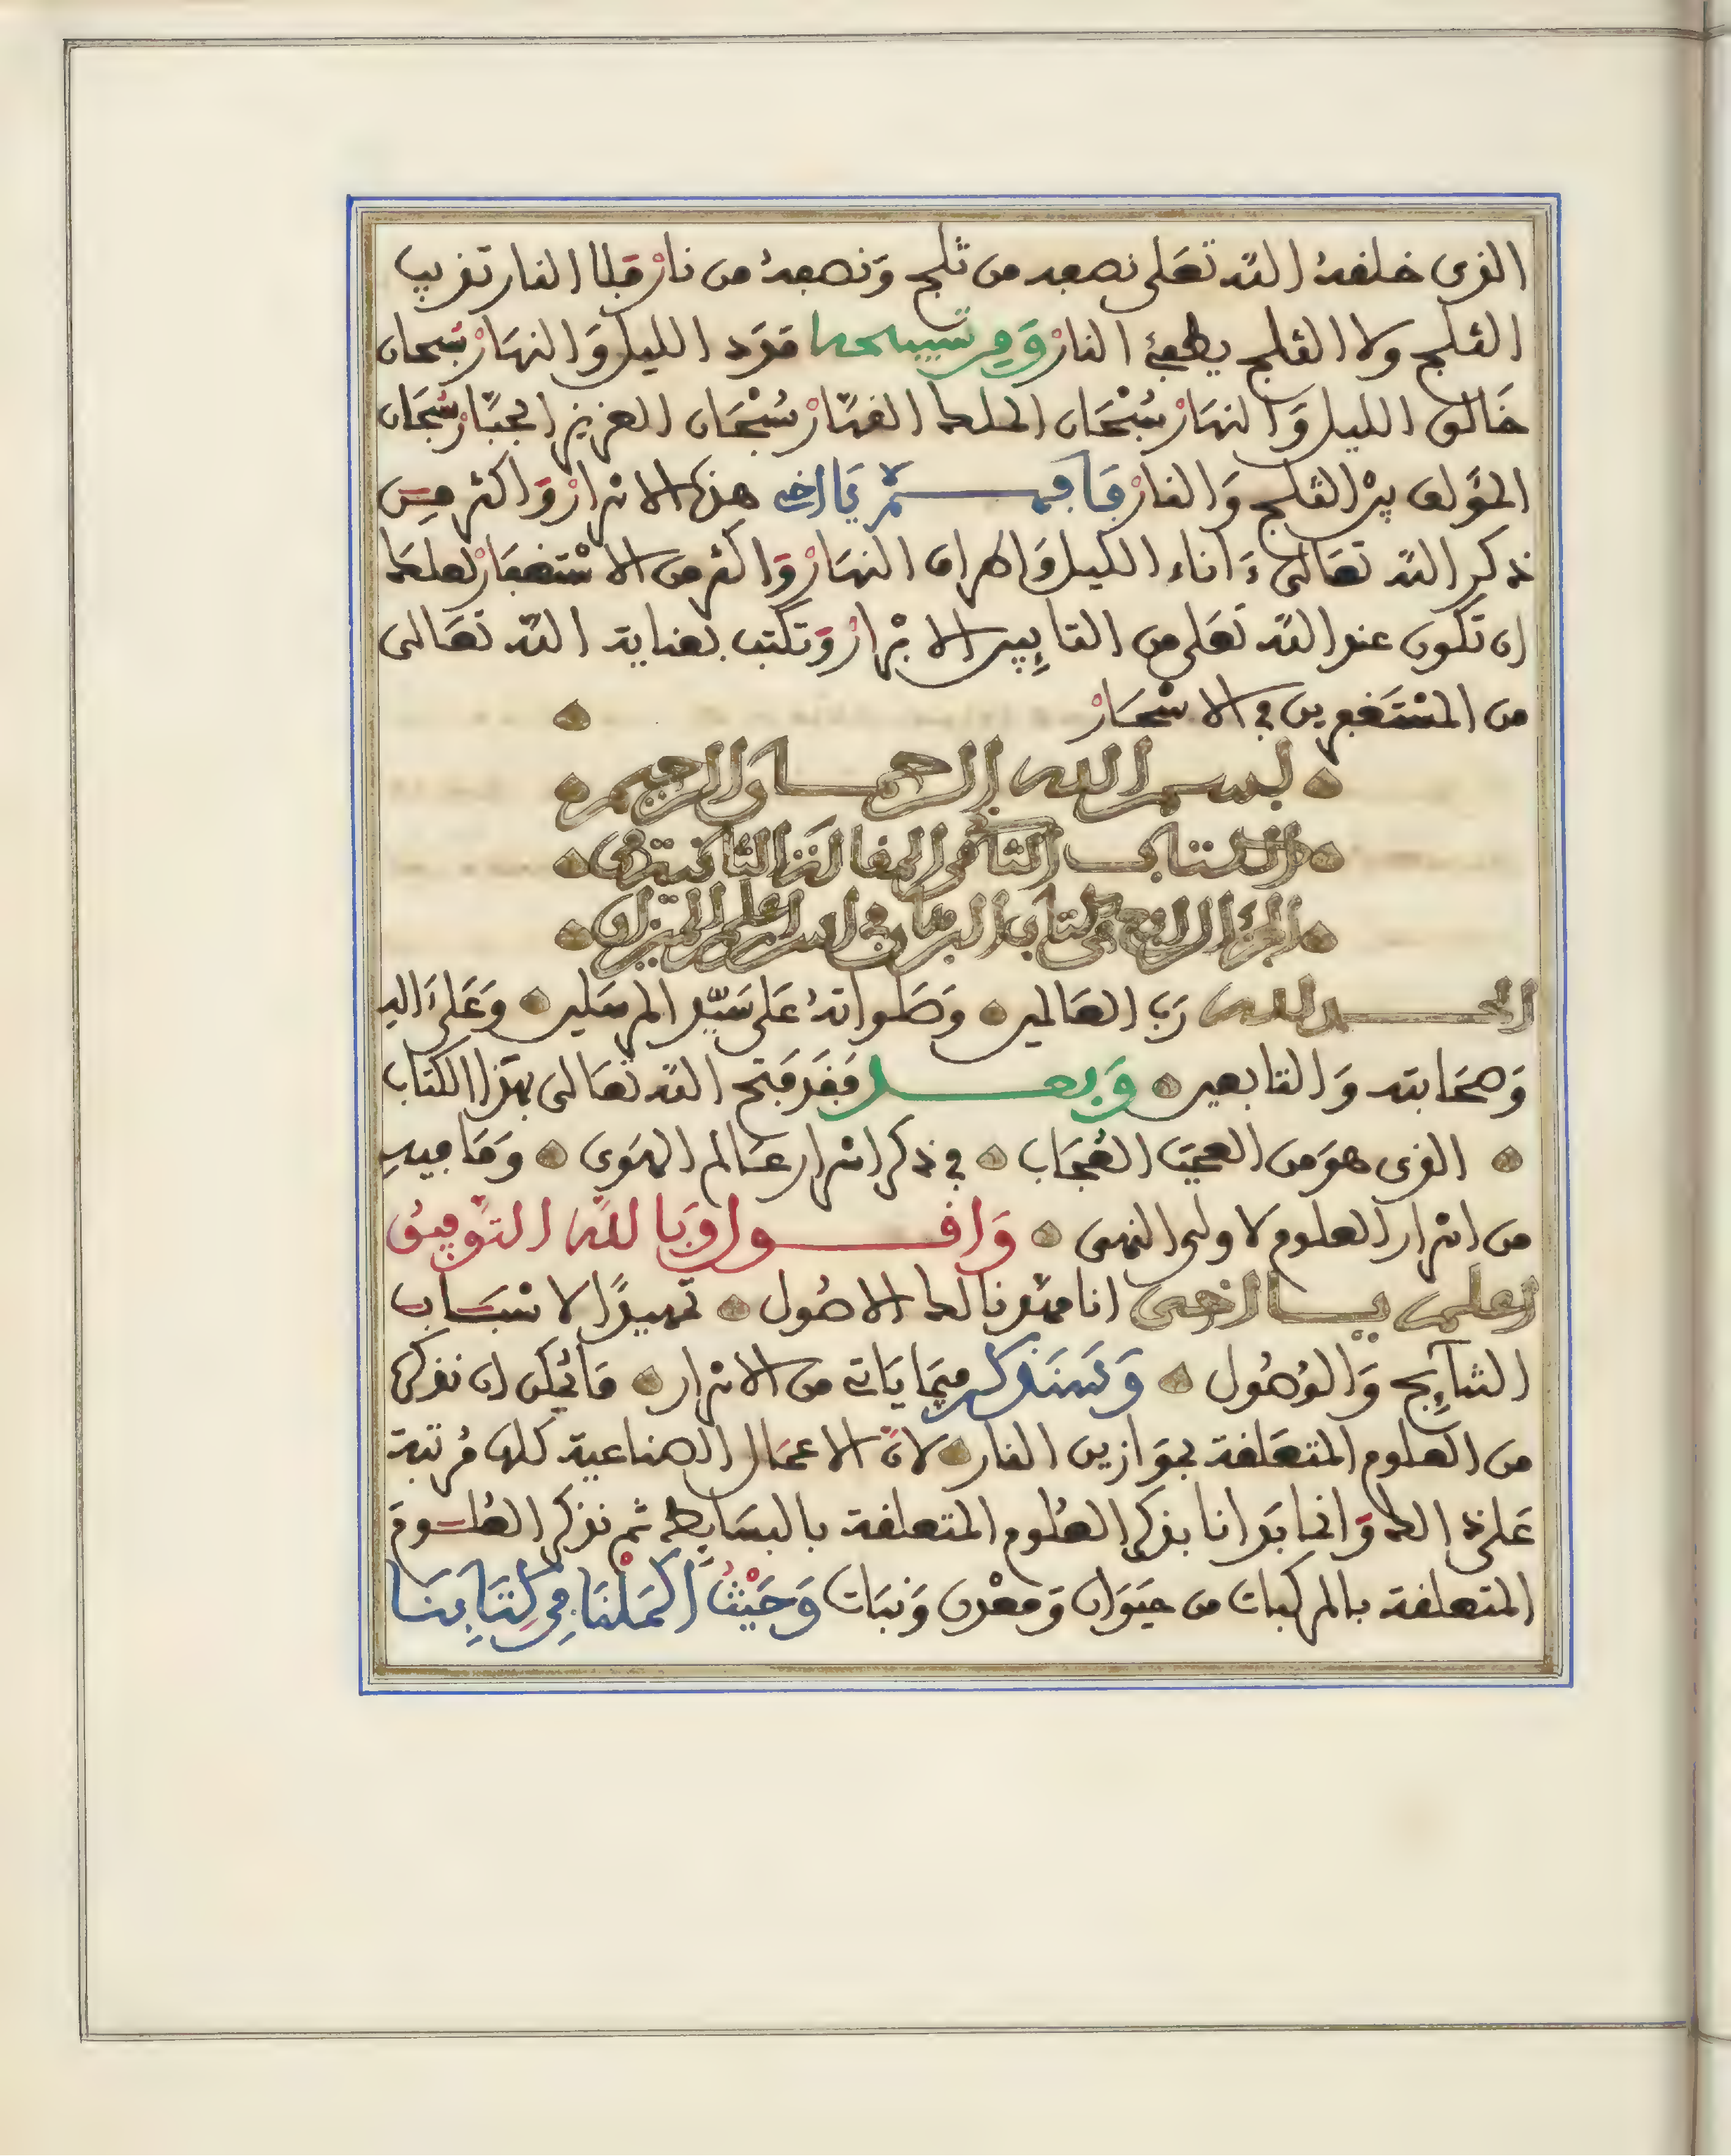 الذى خلفهُ الله تعَلى نصفه من ثلج وَنصفهُ من نارْ فلا النار تذيب
الثلج ولا الثلج يطفئ النارْ وَمِن تسبيحه مَدَد الليل وَالنهَارْ سُبحان
خَالق الليل وَالنهَارْ سُبْحَان الملك القهّارْ سُبْحَان العزيز الجبّارْ سُبحَان
المؤلف بيْن الثلج وَالنارْ فَافهم يَا اخى هذه الاسرارْ وَاكثر مِن
ذكر الله تعَالى ءَاناء الليل وَاطراف النهَارْ وَاكثر من الاسْتغفَارْ لعلك
ان تكون عند الله تعَلى من التايِبين الابْرارْ وَتكتب بعناية الله تعَالى
من المسْتَغفِرين فى الاسْحَارْ
بسم الله الرحمان الرحيم
الكتاب الثانى المقالة الثانية من
الجزء الرابع من كتاب البرهان فى اسرار علم الميزان
الحمد لله رَب العَالمين وَصَلواتهُ عَلى سَيّد المرسَلين وَعَلى ءَاله
وَصحَابته وَالتابعين وَبعد فقَد فتح الله تعَالى بهَذا الكتاب
الذى هوَ من العجَب العُجَاب فى ذكر اسْرار عَالم الهَوى وَمَا فيهِ
من اسْرار العلوم لاولى النهى وَاقول وَبَالله التوْفيق
اعلم يا اخى انا قدمنا لك الاصُول تمهيدًا لاسْبَاب
النتايِج وَالوُصُول وَسَنذكر فيمَا يَاتى من الاسْرار مَا يُمكن ان نذكره
من العلوم المتعَلقة بموَازين النار لانّ الاعمَال الصناعية كلها مُرتبة
عَلى ذالك وَانما بَدانا بذكر العلوم المتعلقة بالبسَايط ثم نذكر العُلوم
المتعلقة بالمركبات من حيَوَان وَمعْدن وَنبَات وَحَيْثُ اكمَلْنَا فِى كِتَابِنَا